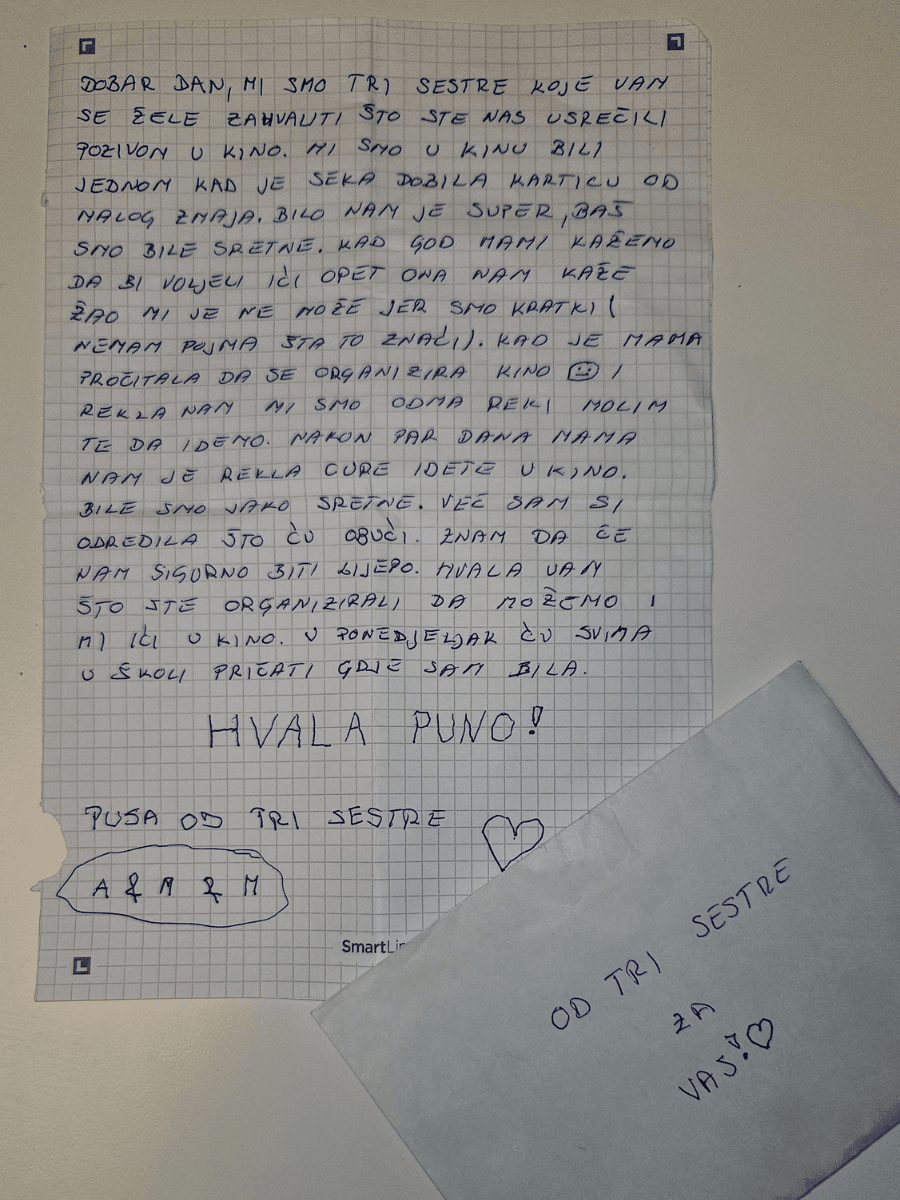 DOBAR DAN, MI SMO TRI SESTRE KOJE VAM
SE ŽELE ZAHVALITI ŠTO STE NAS USREČILI
POZIVOM U KINO. MI SMO U KINU BILI
JEDNOM KAD JE SEKA DOBILA KARTICU OD
MALOG ZMAJA. BILO NAM JE SUPER, BAŠ
SMO BILE SRETNE. KAD GOD MAMI KAŽEMO
DA BI VOLJELI IĆI OPET ONA NAM KAŽE
ŽAO MI JE NE MOŽE JER SMO KRATKI (
NEMAM POJMA ŠTA TO ZNAĆI). KAD JE MAMA
PROČITALA DA SE ORGANIZIRA KINO 😐 I
REKLA NAM MI SMO ODMA REKI MOLIM
TE DA IDEMO. NAKON PAR DANA MAMA
NAM JE REKLA CURE IDETE U KINO.
BILE SMO JAKO SRETNE. VEĆ SAM SI
ODREDILA ŠTO ĆU OBUĆI. ZNAM DA ĆE
NAM SIGURNO BITI LIJEPO. HVALA VAM
ŠTO STE ORGANIZIRALI DA MOŽEMO I
MI IĆI U KINO. U PONEDJELJAK ĆU SVIMA
U ŠKOLI PRIČATI GDJE SAM BILA.
HVALA PUNO!
PUSA OD TRI SESTRE
A & M & M
OD TRI SESTRE
ZA
VAS!